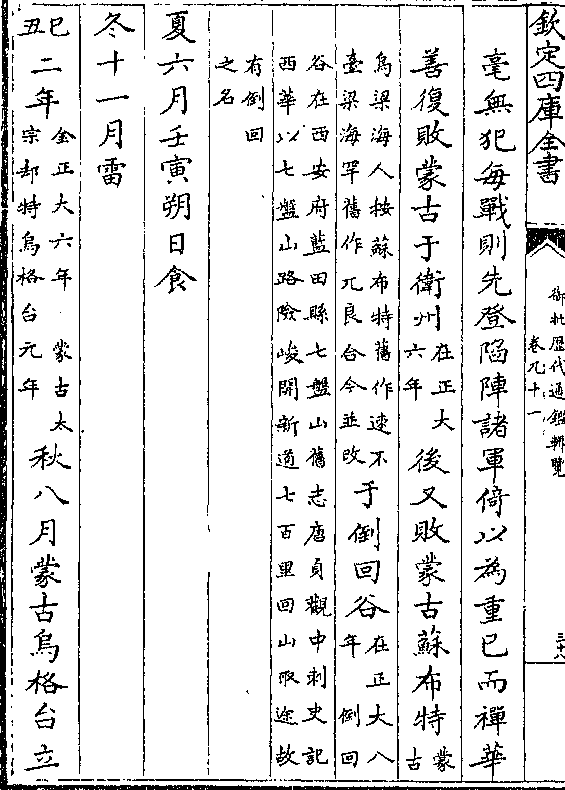 欽定四庫全書
御批歷代通鑑輯覽
卷九十一
毫無犯每戰則先登陷陣諸軍倚以為重已而禪華
善復敗蒙古于衛州在正大六年後又敗蒙古蘇布特蒙古
烏梁海人按蘇布特舊作速不臺梁海罕舊作兀良合今並改于倒回谷在正大八年倒回
谷在西安府藍田縣七盤山舊志唐貞觀中刺史記西華以七盤山路險峻開新道七百里回山取途故
有倒回之名
夏六月壬寅朔日食
冬十一月雷
己丑二年金正大六年蒙古太宗却特烏格台元年秋八月蒙古烏格台立